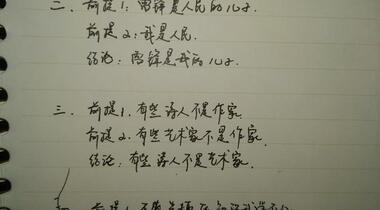 二、前提1:雷锋是人民的儿子.
前提2:我是人民.
结论:雷锋是我的儿子.
三、前提1.有些诗人不是作家.
前提2.有些艺术家不是作家.
结论:有些诗人不是艺术家.
前提1.